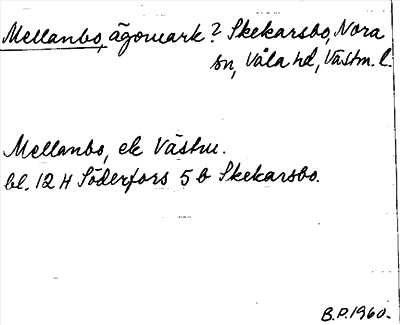 Mellanbo, ägomark? Skekarsbo, Nora
sn, Våla hd, Västm. l.
Mellanbo, ek Västm.
bl. 12 H Söderfors 5 b Skekarsbo.
B.P. 1960.